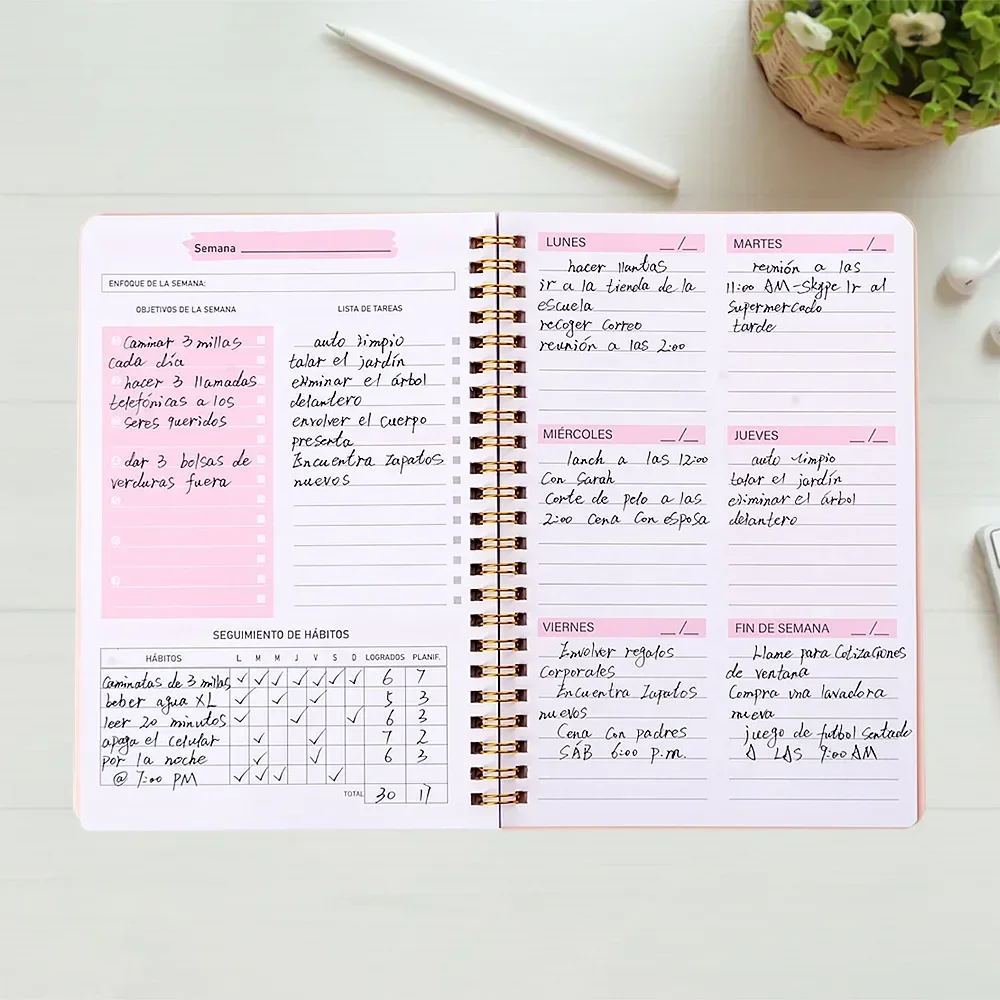 Semana
ENFOQUE DE LA SEMANA:
OBJETIVOS DE LA SEMANA
Caminar 3 millas
cada día
hacer 3 llamadas
telefónicas a los
seres queridos
dar 3 bolsas de
verduras fuera
LISTA DE TAREAS
auto limpio
talar el jardín
eliminar el árbol
delantero
envolver el cuerpo
presenta
Encuentra Zapatos
nuevos
SEGUIMIENTO DE HÁBITOS
HÁBITOS L M M J V S D LOGRADOS PLANIF.
caminatas de 3 millas ✓ ✓ ✓ ✓ ✓ ✓ ✓ 6 7
beber agua XL ✓ ✓ ✓ 5 3
leer 20 minutos ✓ ✓ ✓ 6 3
apaga el celular ✓ ✓ 7 2
por la noche ✓ ✓ 6 3
@ 7:00 PM ✓ ✓ ✓ ✓
TOTAL 30 17
LUNES __/__
hacer llantas
ir a la tienda de la
escuela
recoger correo
reunión a las 2:00
MARTES __/__
reunión a las
11:00 AM-Skype Ir al
Supermercado
tarde
MIÉRCOLES __/__
lanch a las 12:00
Con Sarah
Corte de pelo a las
2:00 Cena Con esposa
JUEVES __/__
auto limpio
talar el jardín
eliminar el árbol
delantero
VIERNES __/__
Envolver regalos
Corporales
Encuentra Zapatos
nuevos
Cena con padres
SÁB 6:00 p.m.
FIN DE SEMANA __/__
Llame para Cotizaciones
de ventana
Compra una lavadora
nueva
juego de futbol Sentado
A LAS 9:00 AM